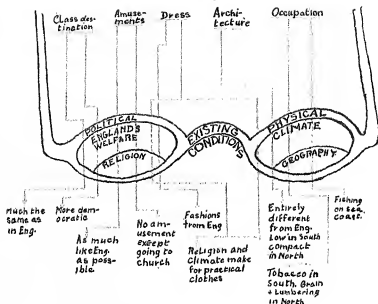 Class des-
tination
Amuse-
ments
Dress
Archi-
tecture
Occupation
POLITICAL
ENGLAND'S
WELFARE
RELIGION
EXISTING
CONDITIONS
PHYSICAL
CLIMATE
GEOGRAPHY
Much the
same as
in Eng.
More dem-
ocratic
As much
like Eng.
as pos-
ible
No am-
usement
except
going to
church
Fashions
from Eng
Religion and
Climate make
for practical
clothes
Entirely
different
from Eng-
Low in South
compact
in North
Fishing
on sea
coast.
Tobacco in
South. Grain
+ Lumbering
in North